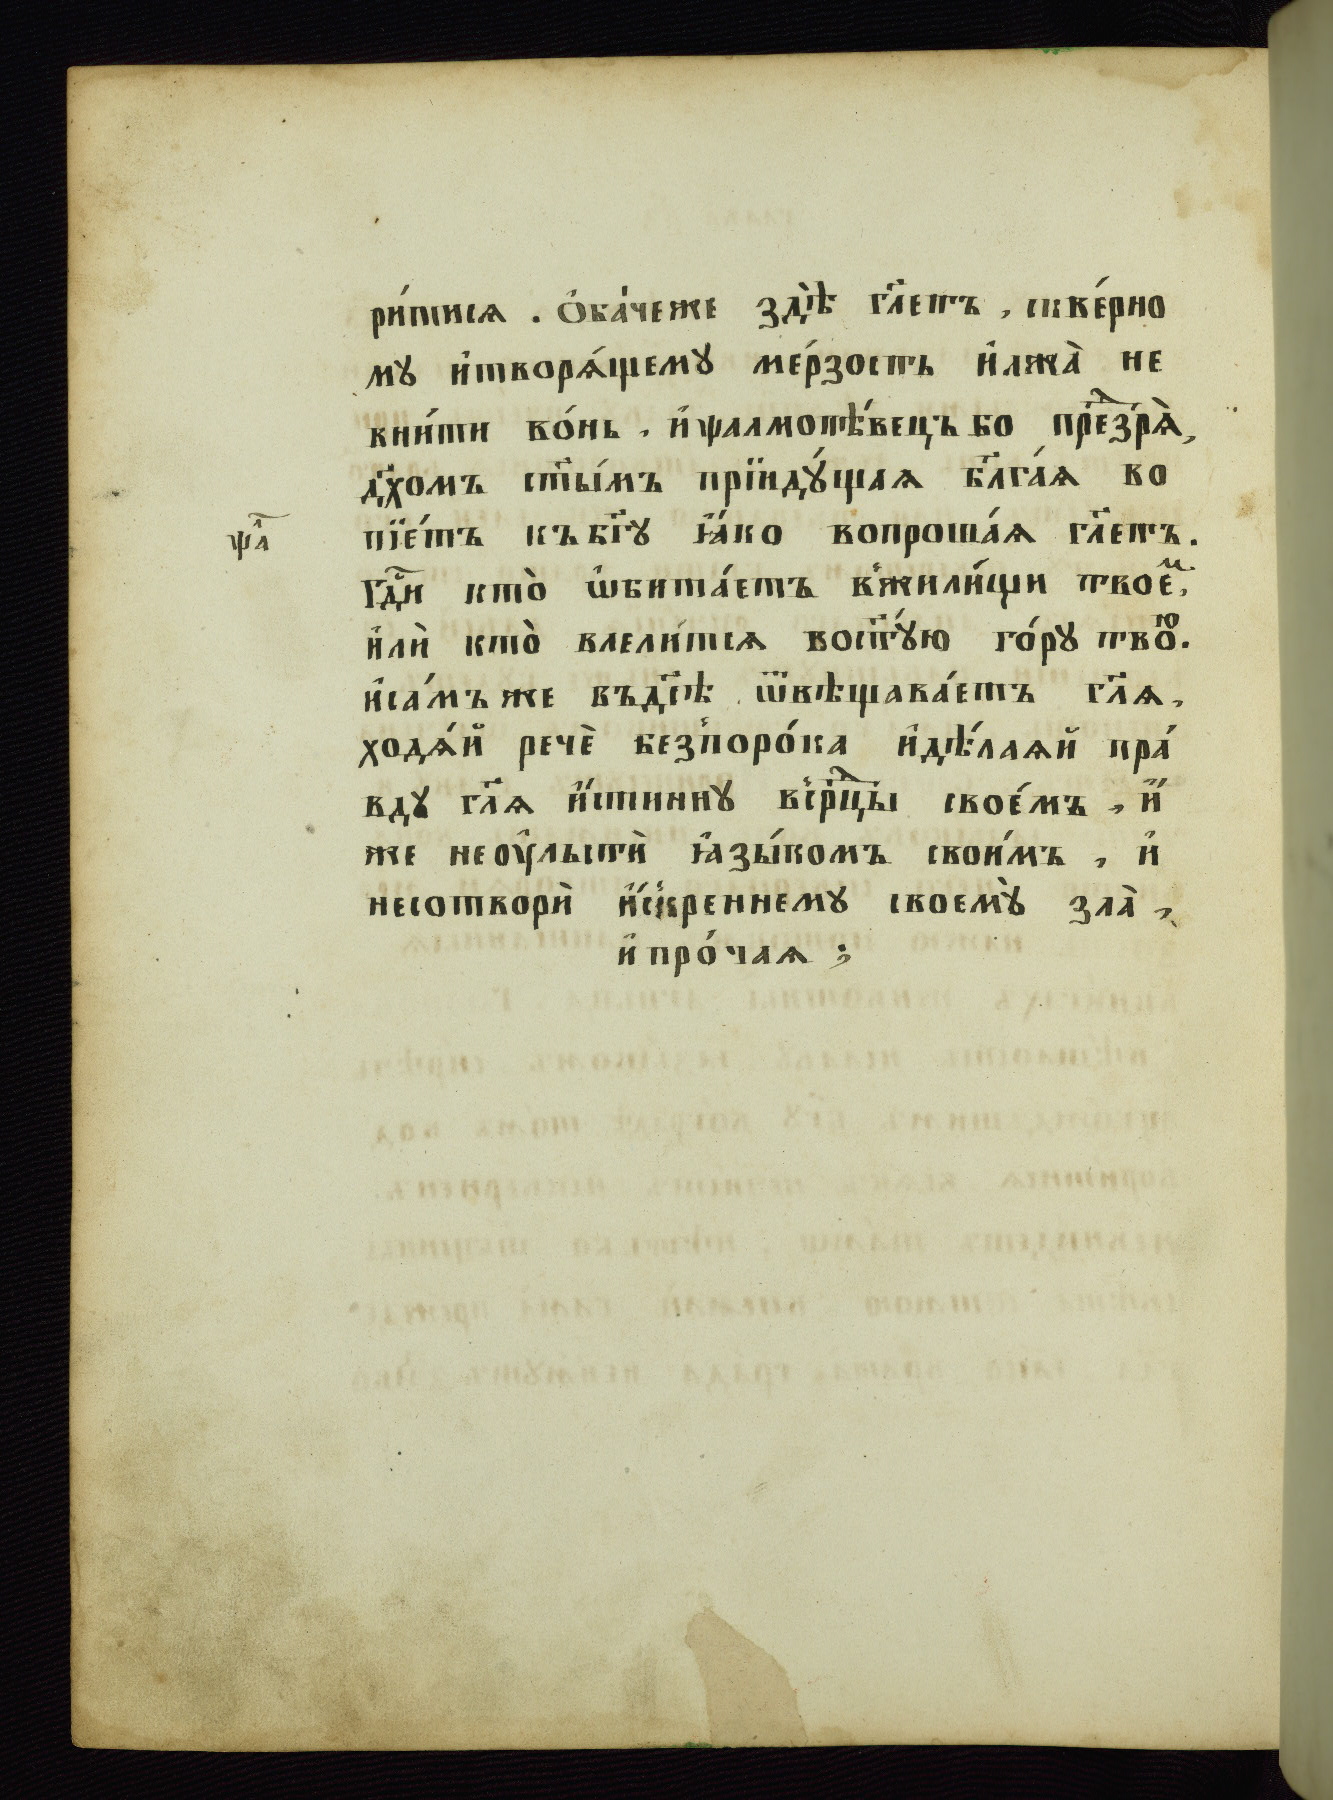 ри́тися . Ѻ҆ба́чеже здѣ̀ гл҃етъ , скве́рно
му и҆творѧ́щему ме́рзость и҆лжа̀ не
вни́ти во́нь , и҆ѱалмопѣ́вецъ бо презрѧ̀,
дх҃омъ ст҃ы́мъ прїиду́щаѧ бл҃га́ѧ во
пїе́тъ къ бг҃у ꙗ҆́ко вопроша́ѧ гл҃етъ .
ѱⷧ҇а
Гдⷭ҇и кто̀ ѡ҆бита́етъ в̾жили́щи твоеⷨ҇,
и҆лѝ кто̀ вселѝтсѧ вост҃у́ю го́ру твоⷻ .
и҆са́мъ же въдс҃ѣ ѿвѣщава́етъ гл҃ѧ ,
ходѧ́й речѐ без̾поро́ка и҆дѣ́лаѧй пра́
вду гл҃ѧ и҆́стинну в̾срⷣцы своє́мъ , и҆́
же неоу҆льстѝ ꙗ҆зы́комъ свои́мъ , и҆
несотворѝ и҆́скреннему своемꙋ̀ зла̀ ,
и҆ про́чаѧ ;